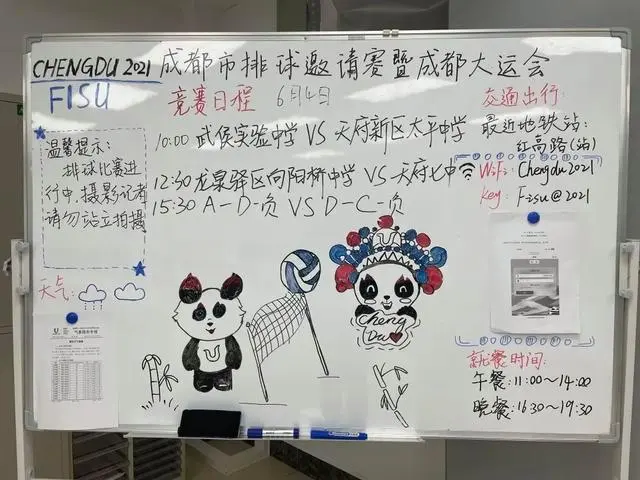 CHENGDU 2021
FISU
成都市排球邀请赛暨成都大运会
竞赛日程 6月4日
10:00 武侯实验中学 VS 天府新区太平中学
12:30 龙泉驿区向阳桥中学 VS 天府七中
15:30 A-D-负 VS D-C-负
温馨提示:
排球比赛进
行中,摄影记者
请勿站立拍摄
天气:
交通出行:
最近地铁站:
红高路(站)
WiFi: Chengdu2021
Key: Fisu@2021
Cheng
Du
就餐时间:
午餐:11:00~14:00
晚餐:16:30~19:30